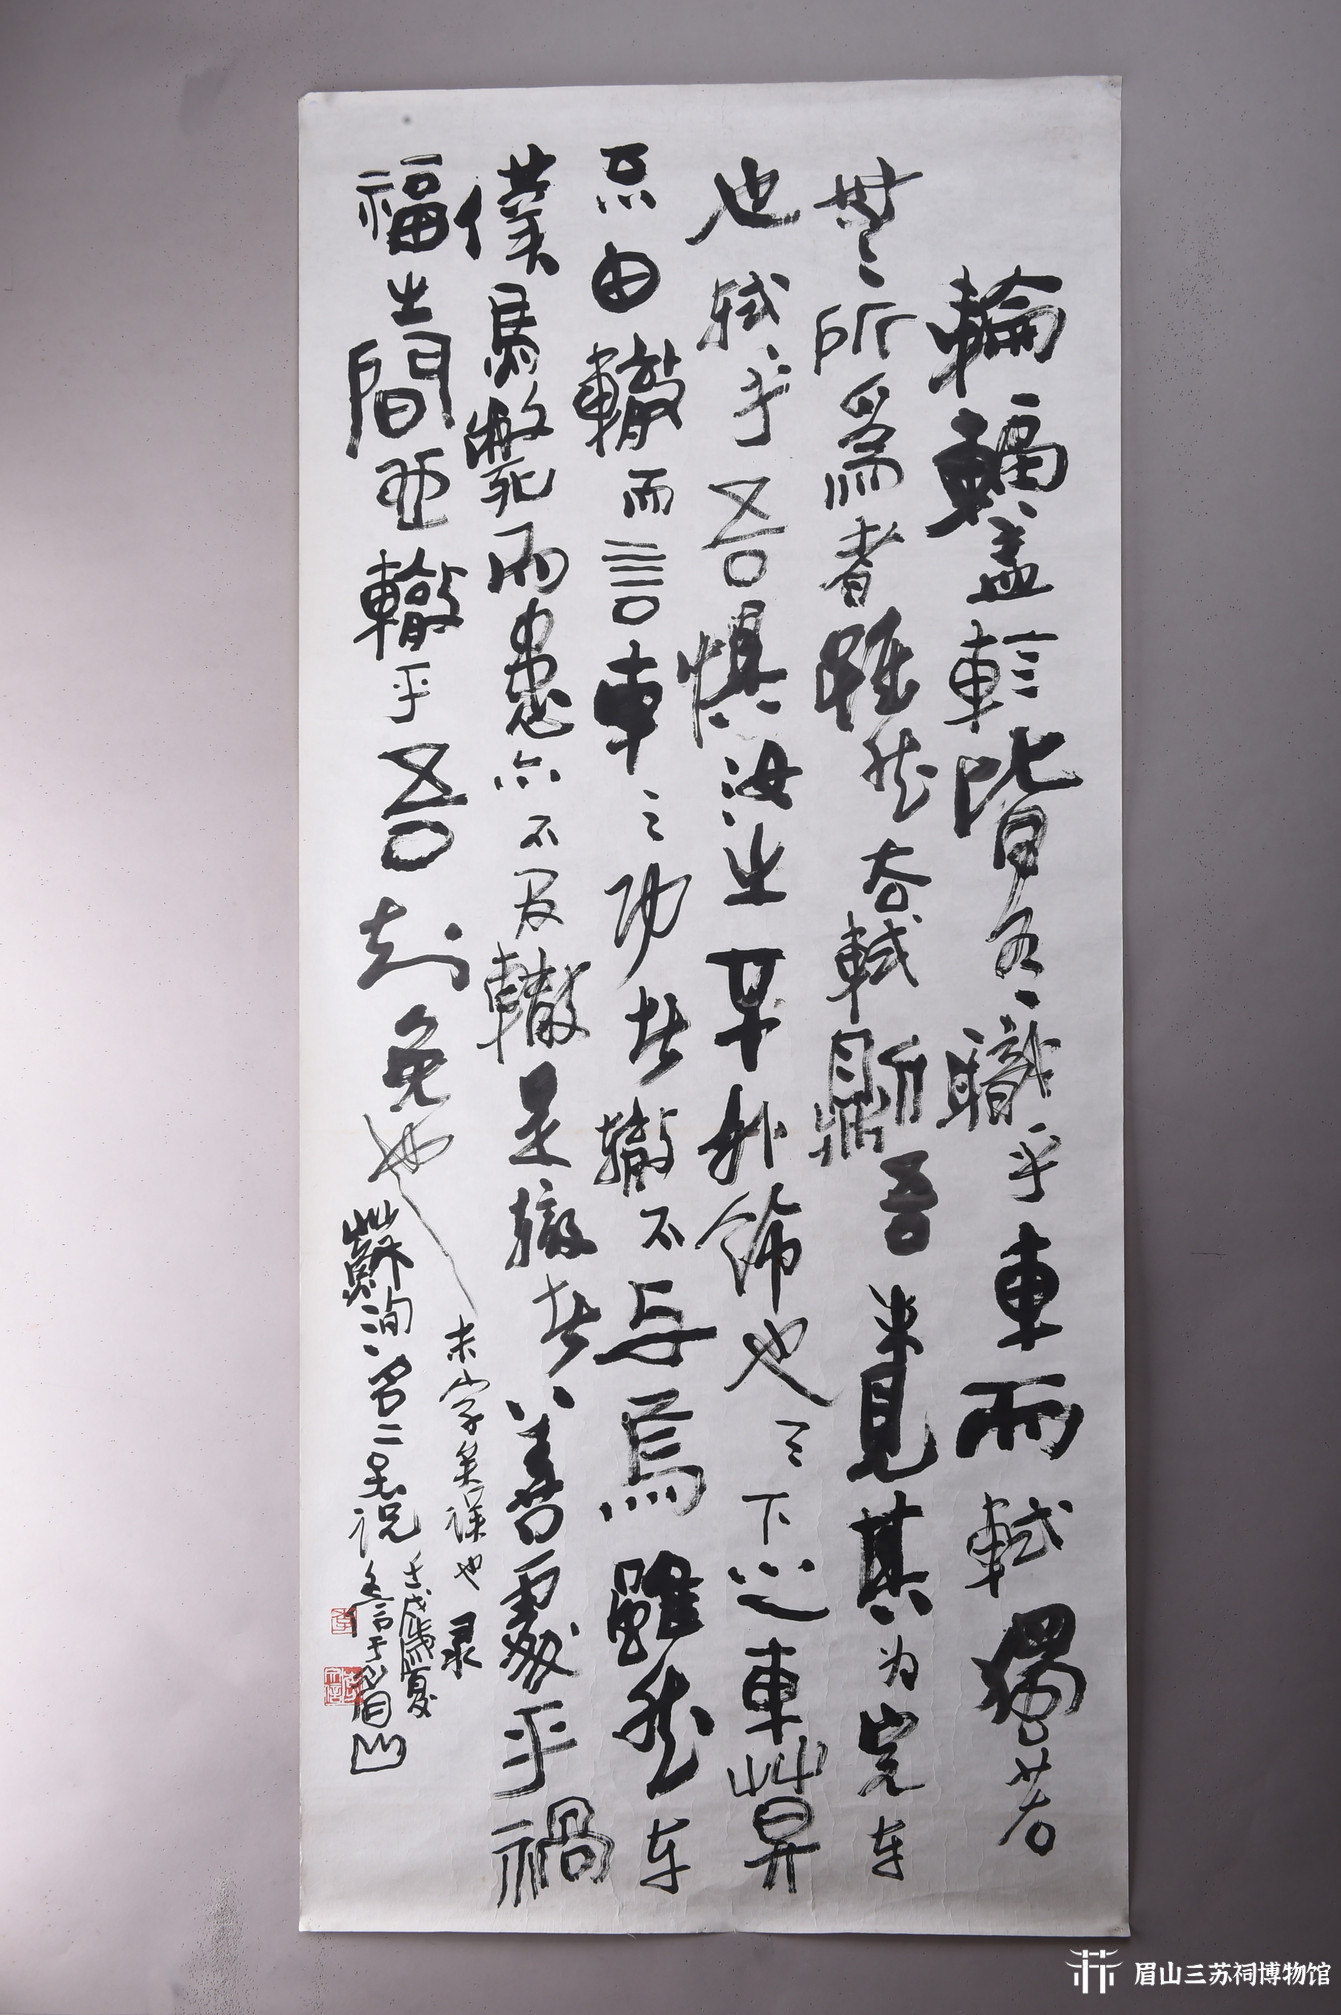 輪輻盖軫皆有職乎車而軾獨若
無所爲者雖然去軾則吾未見其为完车
也軾乎吾懼汝之不外飾也天下之車莫
不由轍而言車之功者轍不与焉雖然车
僕馬斃而患亦不及轍是轍者善處乎禍
福之間也轍乎吾知免也
末字矣誤也 录
蘇洵名二子说
壬戌歲夏
于眉山
眉山三苏祠博物馆